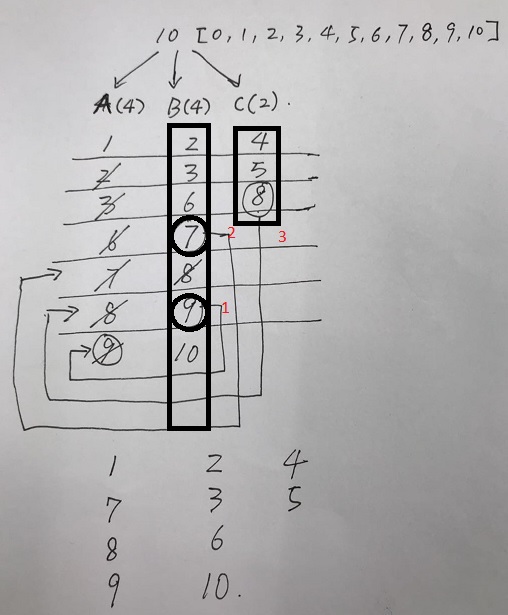 10 [0, 1, 2, 3, 4, 5, 6, 7, 8, 9, 10]
A(4) B(4) C(2).
1 2 4
2 3 5
3 6 8
6 7 2 3
7 8
8 9 1
9 10
1 2 4
7 3 5
8 6
9 10.